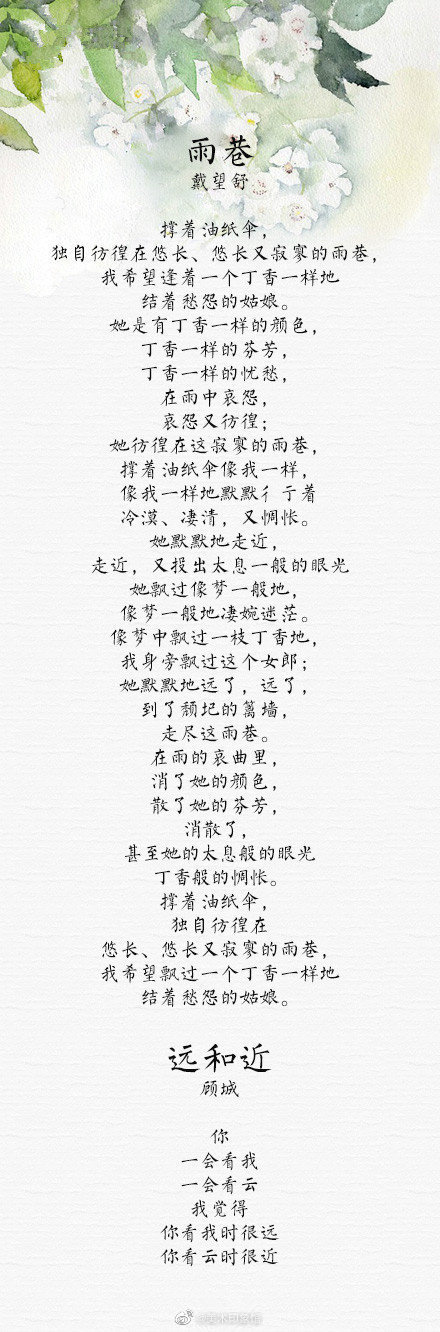 雨巷
戴望舒
撑着油纸伞，
独自彷徨在悠长、悠长又寂寥的雨巷，
我希望逢着一个丁香一样地
结着愁怨的姑娘。
她是有丁香一样的颜色，
丁香一样的芬芳，
丁香一样的忧愁，
在雨中哀怨，
哀怨又彷徨；
她彷徨在这寂寥的雨巷，
撑着油纸伞像我一样，
像我一样地默默彳亍着
冷漠、凄清，又惆怅。
她默默地走近，
走近，又投出太息一般的眼光
她飘过像梦一般地，
像梦一般地凄婉迷茫。
像梦中飘过一枝丁香地，
我身旁飘过这个女郎；
她默默地远了，远了，
到了颓圮的篱墙，
走尽这雨巷。
在雨的哀曲里，
消了她的颜色，
散了她的芬芳，
消散了，
甚至她的太息般的眼光
丁香般的惆怅。
撑着油纸伞，
独自彷徨在
悠长、悠长又寂寥的雨巷，
我希望飘过一个丁香一样地
结着愁怨的姑娘。
远和近
顾城
你
一会看我
一会看云
我觉得
你看我时很远
你看云时很近